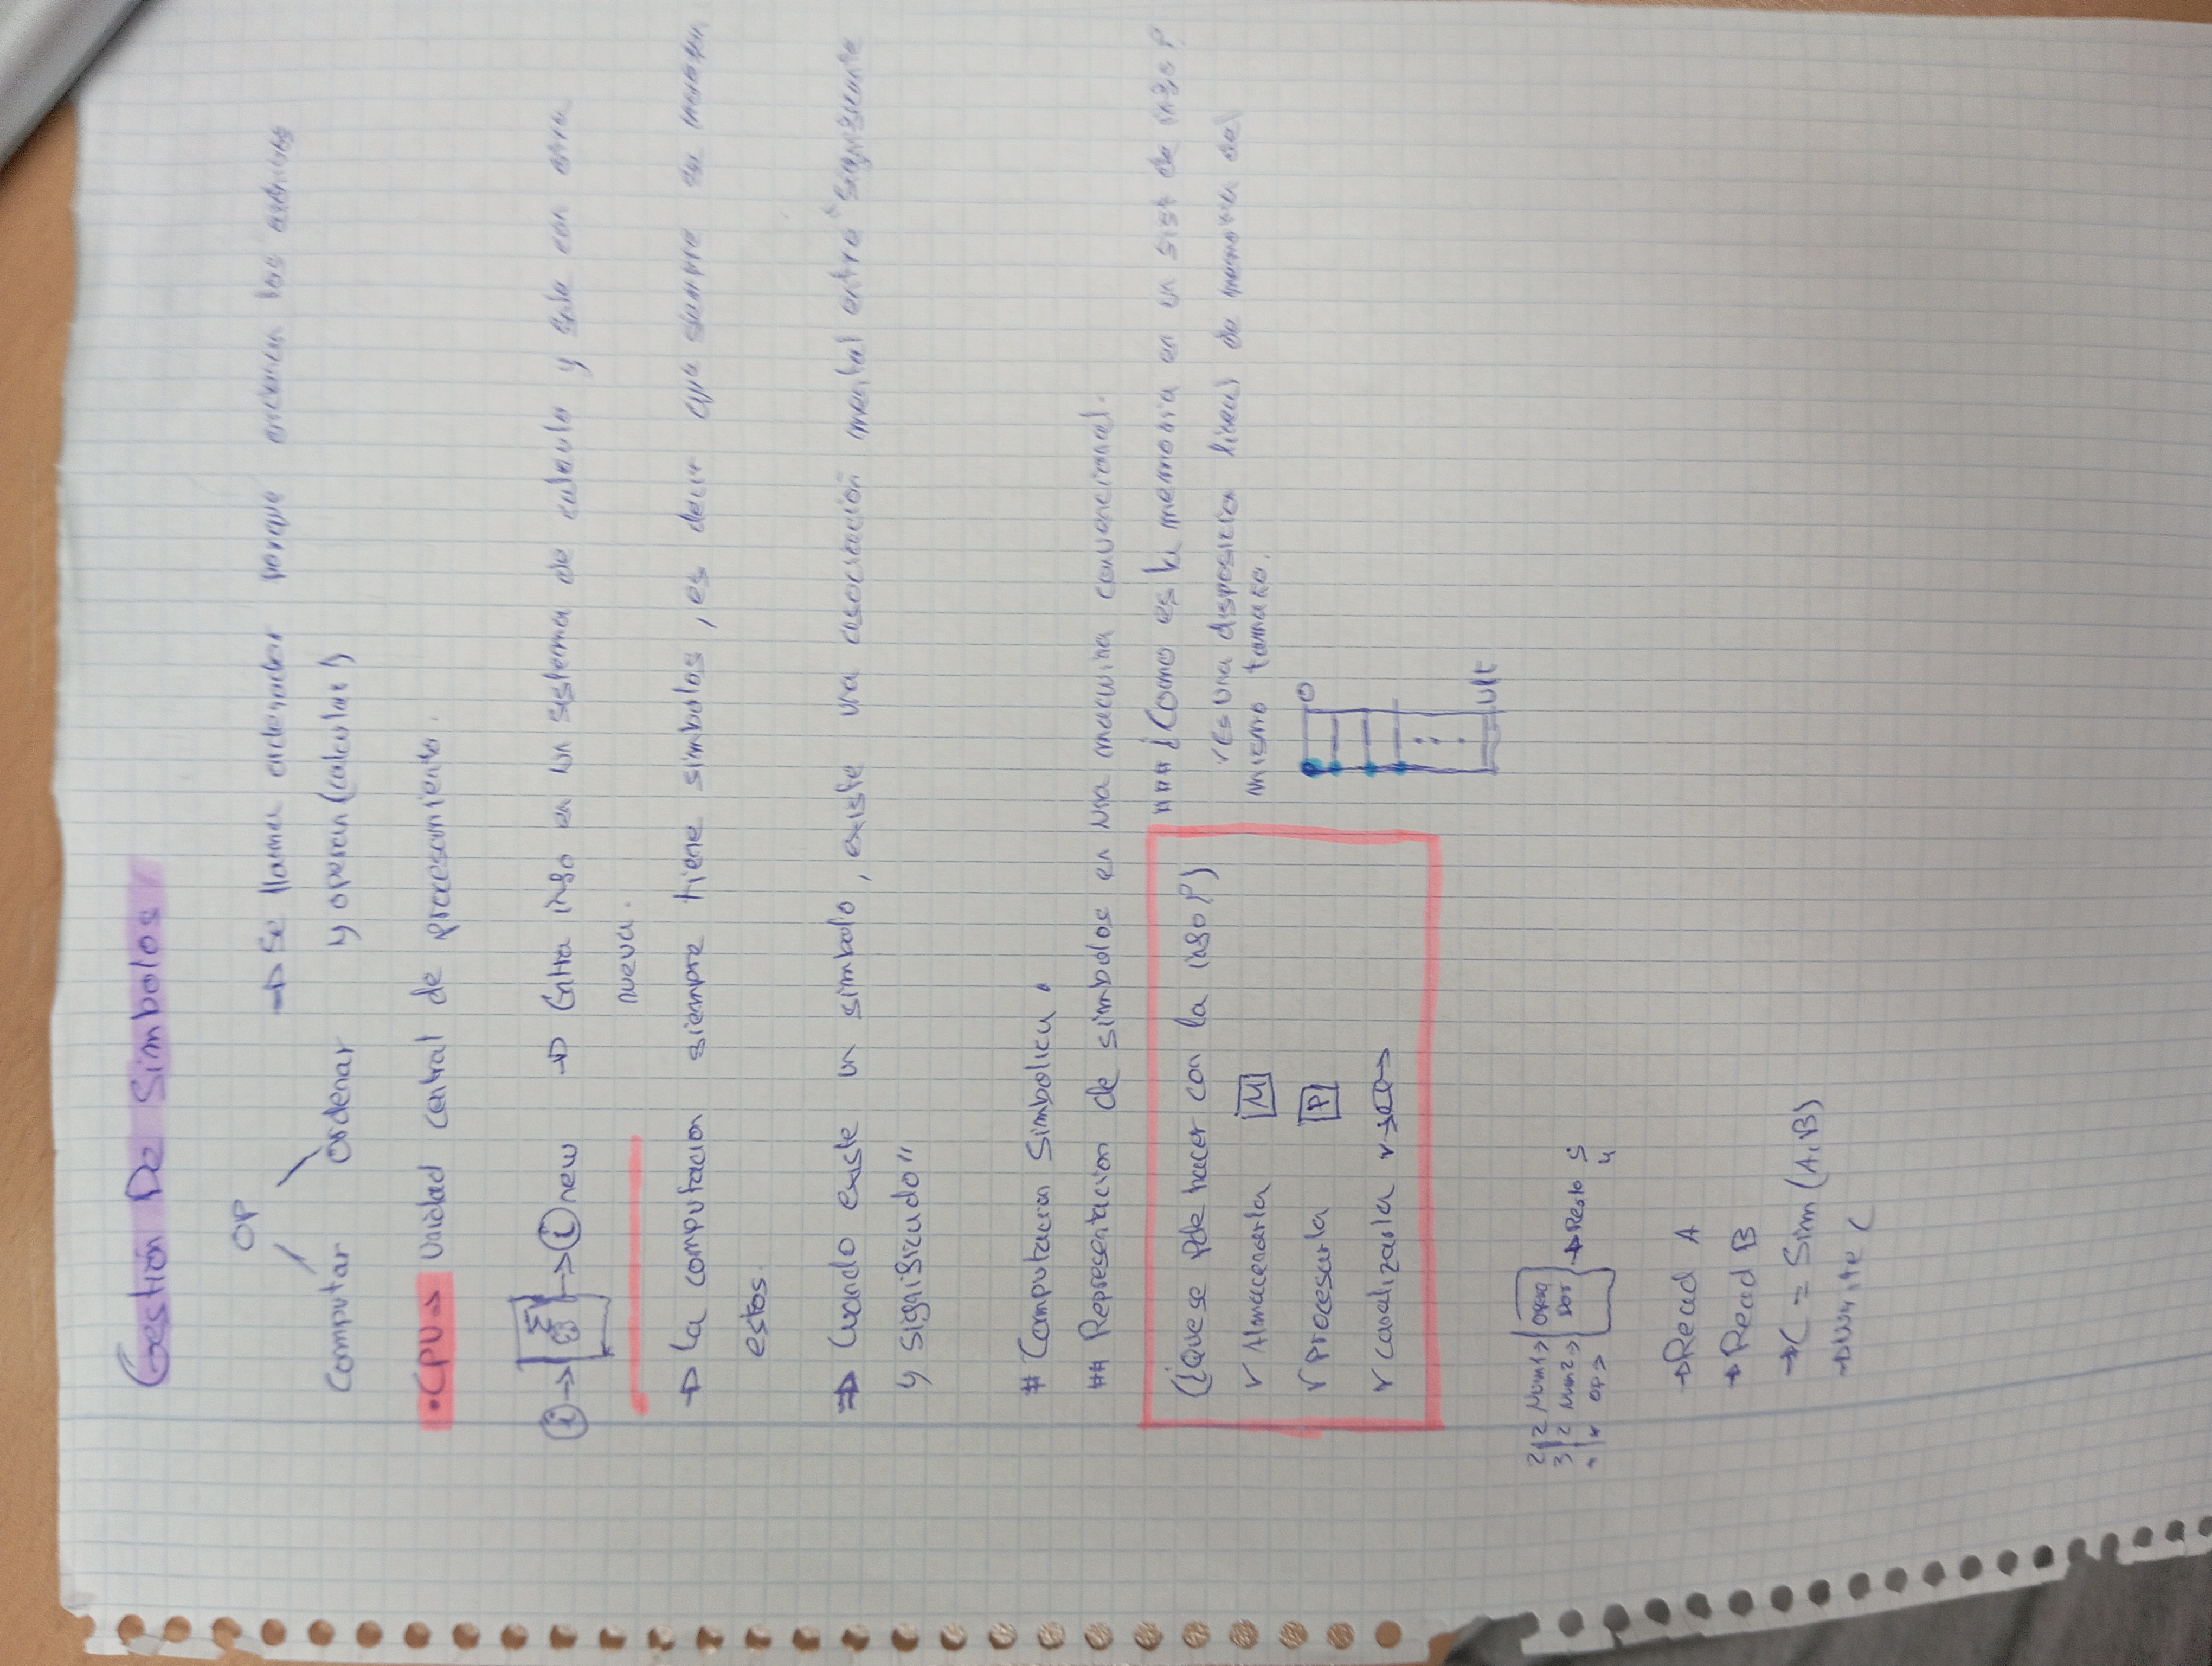 Gestión De Simbolos
OP
Computar Ordenar
→ Se llama ordenador porque ordenan los
y operan (calcular)
• CPU → Unidad central de procesamiento.
i → → i new → Entra info en un sistema de calculo y sale con otra
nueva.
→ La computacion siempre tiene simbolos, es decir que siempre se
estos.
⇒ Cuando existe un simbolo, existe una asociación mental entre "significante
y significado"
# Computacion Simbolica.
## Representacion de simbolos en una macuina convencional.
(¿Que se pde hacer con la info?)
✓ Almacenarla M
✓ Procesarla P
✓ Canalizarla
### ¿Como es la memoria en un sist de info?
✓ Es una disposicion lineal de memoria del
mismo tamaño.
0
Ult
2 2 Num1 → Opera
3 2 Num2 → Dor → Resto 5
OP → 4
→ Read A
→ Read B
→ C = Sum (A, B)
→ Write C